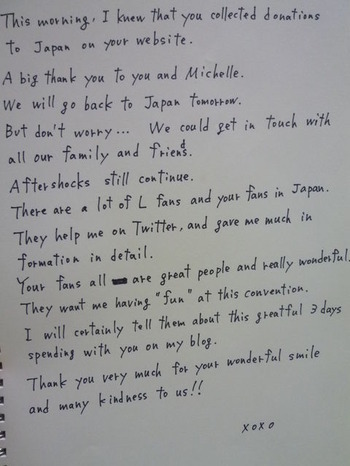 This morning, I knew that you collected donations
to Japan on your website.
A big thank you to you and Michelle.
We will go back to Japan tomorrow.
But don't worry... We could get in touch with
all our family and friends.
Aftershocks still continue.
There are a lot of L fans and your fans in Japan.
They help me on Twitter, and gave me much in
formation in detail.
Your fans all are great people and really wonderful.
They want me having "fun" at this convention.
I will certainly tell them about this greatful 3 days
spending with you on my blog.
Thank you very much for your wonderful smile
and many kindness to us!!
xoxo